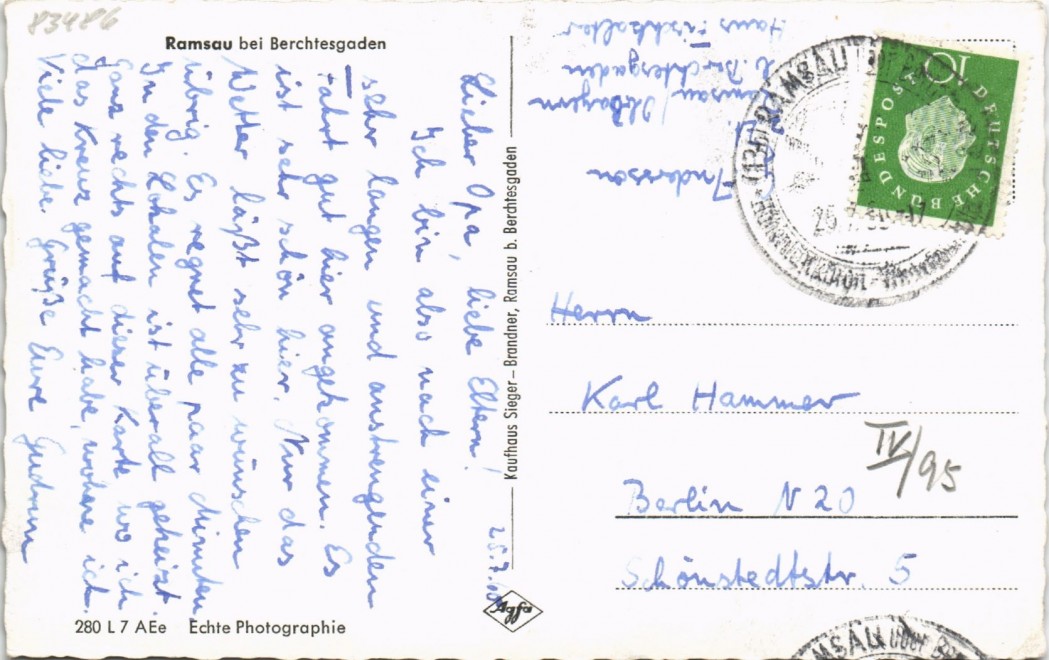 83486
Ramsau bei Berchtesgaden
25.7.60
Lieber Opa, liebe Eltern!
Ich bin also nach einer
sehr langen und anstrengenden
Fahrt gut hier angekommen. Es
ist sehr schön hier. Nur das
Wetter läßt sehr zu wünschen
übrig. Es regnet alle paar Minuten.
In den Lokalen ist überall geheizt.
Ganz rechts auf dieser Karte wo ich
das Kreuz gemacht habe, wohne ich.
Viele liebe Grüße Eure Gudrun
280 L 7 AEe Echte Photographie
Kaufhaus Sieger – Brandner, Ramsau b. Berchtesgaden
Agfa
Ramsau / Obbayern
b. Berchtesgaden
Haus
DEUTSCHE BUNDESPOST
10
RAMSAU
Herrn
Karl Hammer
Berlin N 20
Schönstedtstr. 5
IV/95
RAMSAU über